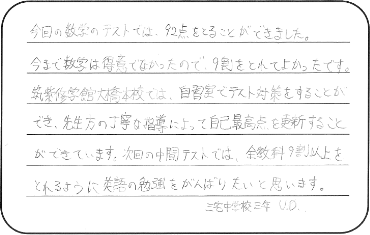 今回の数学のテストでは、92点をとることができました。
今まで数学は得意でなかったので、9割をとれてよかったです。
筑紫修学館大橋本校では、自習室でテスト対策をすることが
でき、先生方の丁寧な指導によって自己最高点を更新すること
ができています。次回の中間テストでは、全教科9割以上を
とれるように英語の勉強をがんばりたいと思います。
三宅中学校三年 U.D.